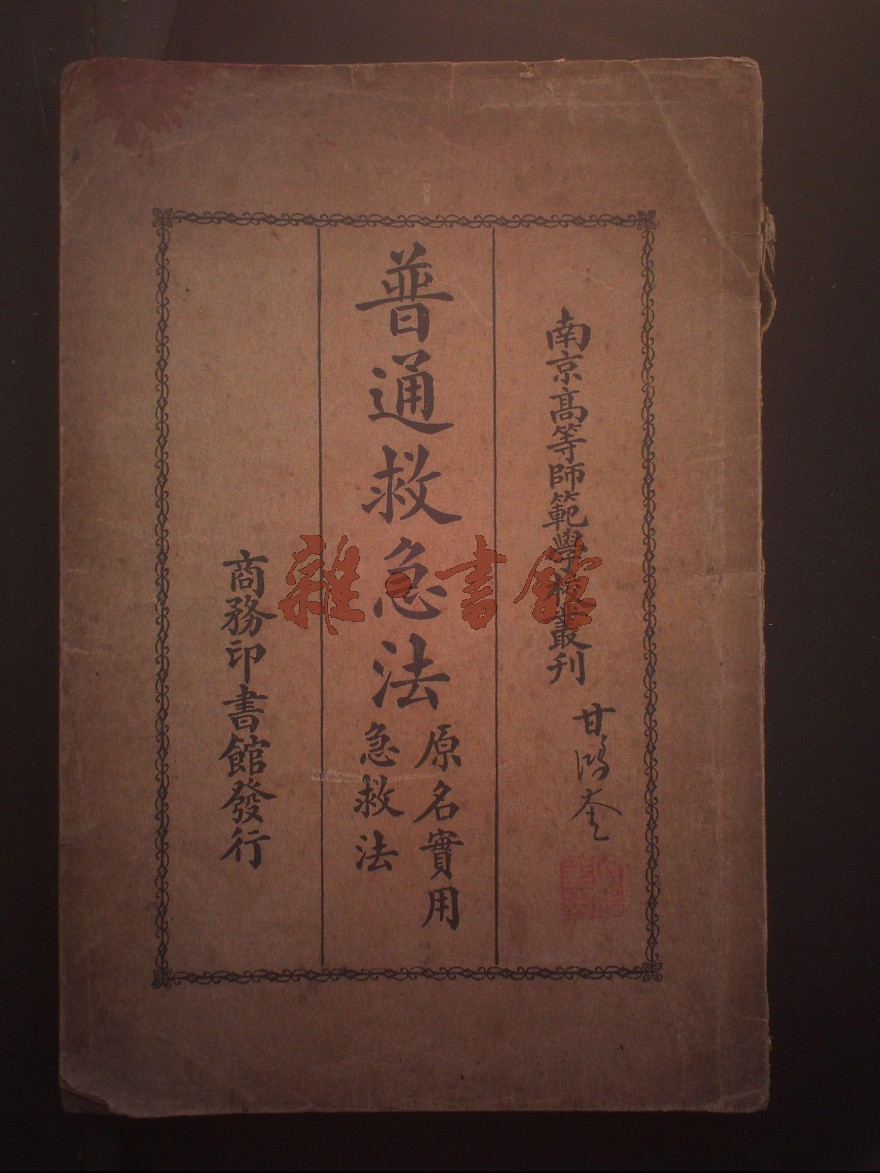 南京高等師範學校叢刊
甘鴻奎
普通救急法
原名實用
急救法
商務印書館發行
雜·書館